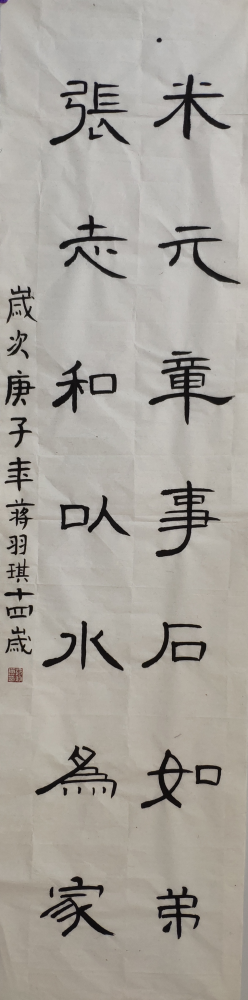 米元章事石如弟
張志和以水為家
歲次庚子年蔣羽琪十四歲